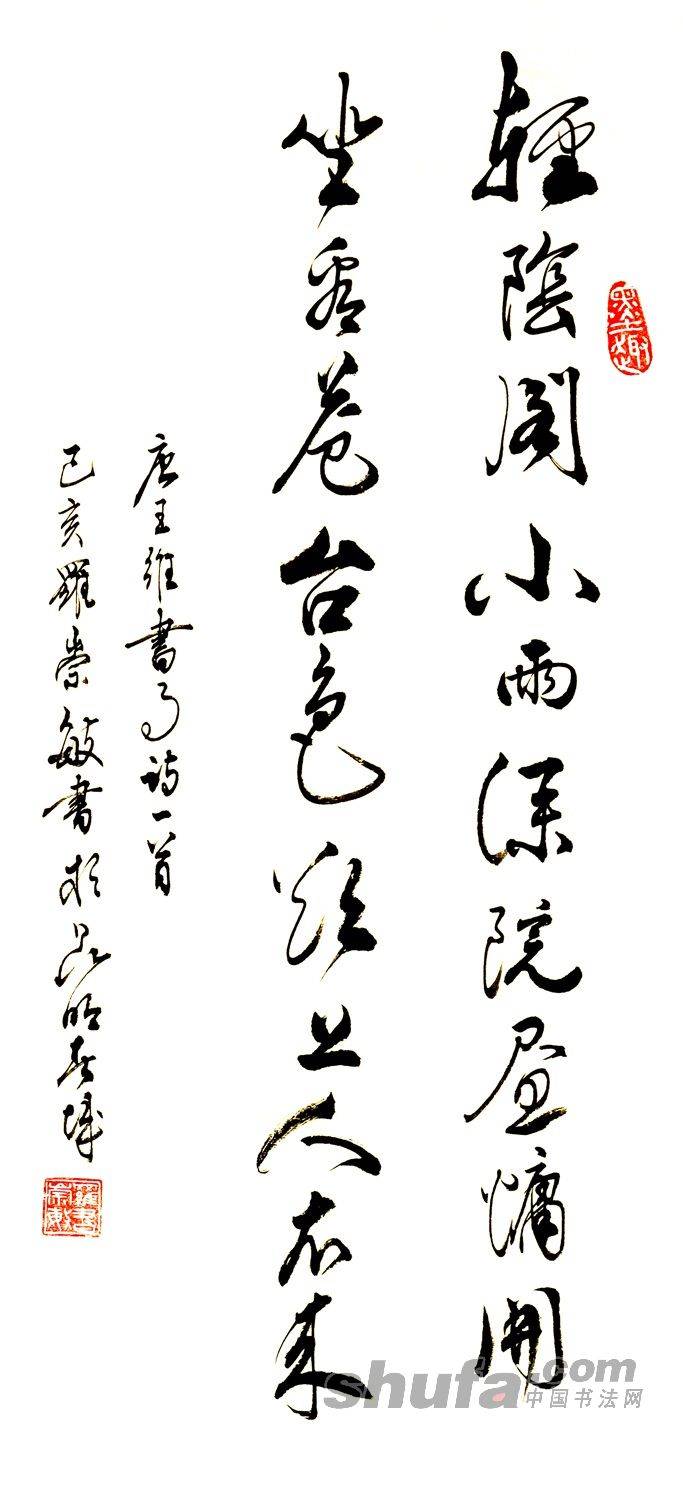 輕陰閣小雨深院昼慵開
坐看苍台色欲上人衣来
唐王維書事詩一首
己亥羅崇敏書於昆明春城
墨趣
shufa.com
中国书法网